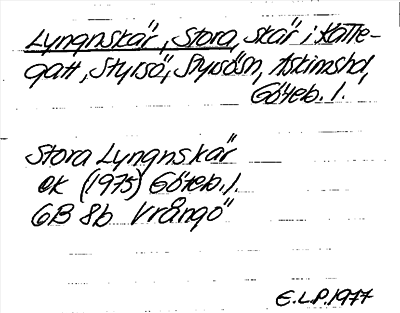 Lyngnskär, Stora, skär i Katte-
gatt, Styrsö, Styrsösn, Askimshd,
Göteb. l.
Stora Lyngnskär
ek (1975) Göteb. l.
6B 8b Vrångö
E.L.P. 1977